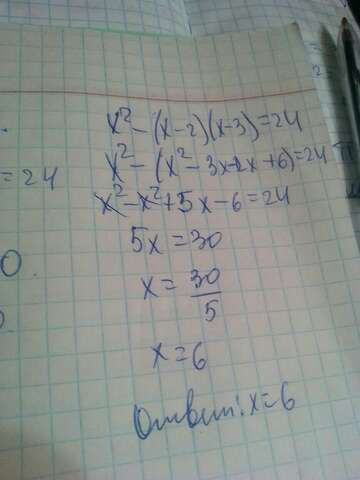 x² - (x-2)(x-3)=24
x² - (x² - 3x-2x+6)=24
= 24
x² - x² + 5x - 6 = 24
5x = 30
0.
x = 30/5
x = 6
Ответ: x=6